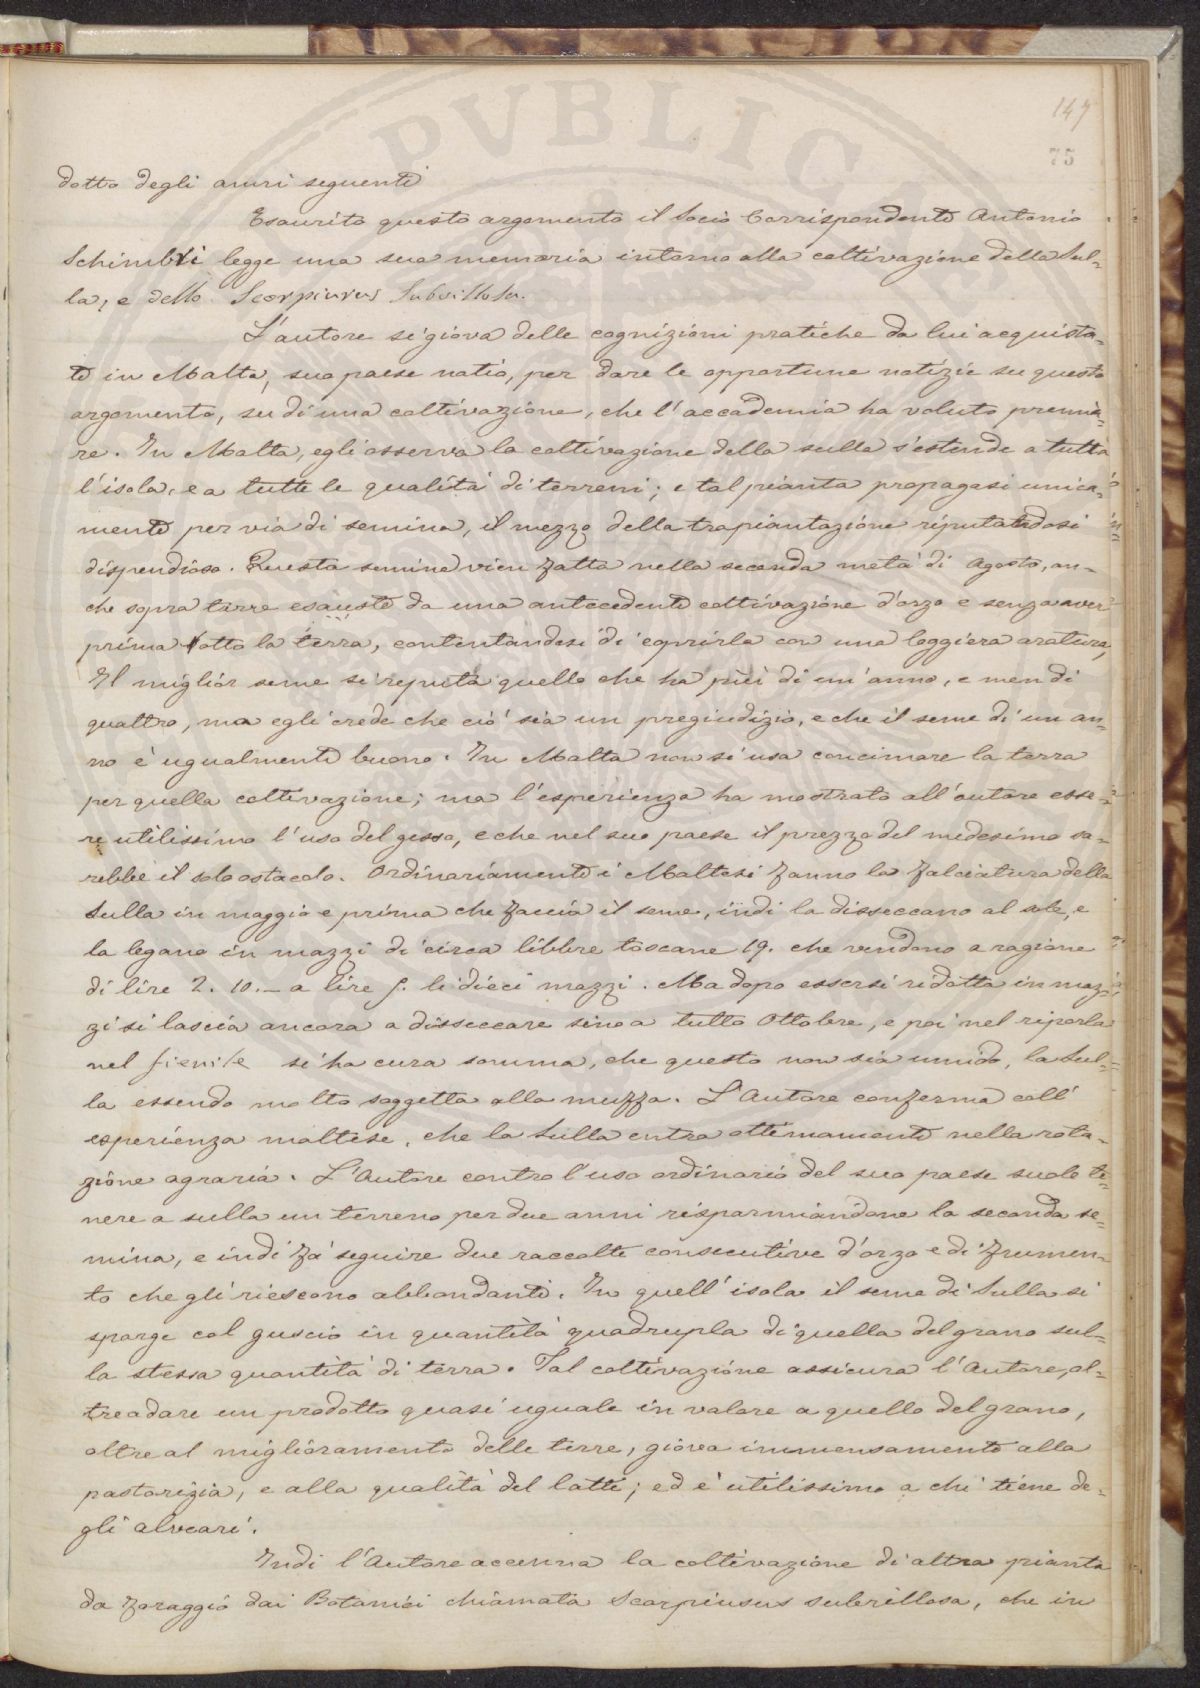 PVBLICAE
147
75
dotto degli anni seguenti
Esaurito questo argomento il Socio Corrispondente Antonio
Schimbri legge una sua memoria intorno alla coltivazione della Sul=
la, e dello Scorpiurus Subvillosa.
L'autore si giova delle cognizioni pratiche da lui acquista=
te in Malta, suo paese natio, per dare le opportune notizie su questo
argomento, su di una coltivazione, che l'accademia ha voluto premia=
re. In Malta, egli osserva la coltivazione della sulla s'estende a tutta
l'isola, e a tutte le qualità di terreni; e tal pianta propagasi unica=
mente per via di semina, il mezzo della trapiantazione riputandosi
dispendioso. Questa semina vien fatta nella seconda metà di Agosto, an=
che sopra terre esauste da una antecedente coltivazione d'orzo e senza aver
prima rotto la terra, contentandosi di coprirla con una leggiera aratura,
Il miglior seme si reputa quello che ha più di un'anno, e men di
quattro, ma egli crede che ciò sia un pregiudizio, e che il seme di un an=
no è ugualmente buono. In Malta non si usa concimare la terra
per quella coltivazione; ma l'esperienza ha mostrato all'autore esse=
re utilissimo l'uso del gesso, e che nel suo paese il prezzo del medesimo sa=
rebbe il solo ostacolo. Ordinariamente i Maltesi fanno la falciatura della
Sulla in maggio e prima che faccia il seme, indi la disseccano al sole, e
la legano in mazzi di circa libbre toscane 19. che vendono a ragione
di lire 2. 10.— a lire 5. li dieci mazzi. Ma dopo essersi ridotta in maz=
zi si lascia ancora a disseccare sino a tutto Ottobre, e poi nel riporla
nel fienile si ha cura somma, che questo non sia umido, la Sul=
la essendo molto soggetta alla muffa. L'Autore conferma coll'
esperienza maltese, che la Sulla entra ottimamente nella rota=
zione agraria. L'Autore contro l'uso ordinario del suo paese suole te=
nere a sulla un terreno per due anni risparmiandone la seconda se=
mina, e indi fà seguire due raccolte consecutive d'orzo e di frumen=
to che gli riescono abbondanti. In quell'isola il seme di Sulla si
sparge col guscio in quantità quadrupla di quella del grano sul=
la stessa quantità di terra. Tal coltivazione assicura l'Autore, ol=
tre a dare un prodotto quasi uguale in valore a quello del grano,
oltre al miglioramento delle terre, giova immensamente alla
pastorizia, e alla qualità del latte; ed è utilissimo a chi tiene de=
gli alveari.
Indi l'Autore accenna la coltivazione di altra pianta
da foraggio dai Botanici chiamata Scorpiusus subvillosa, che in